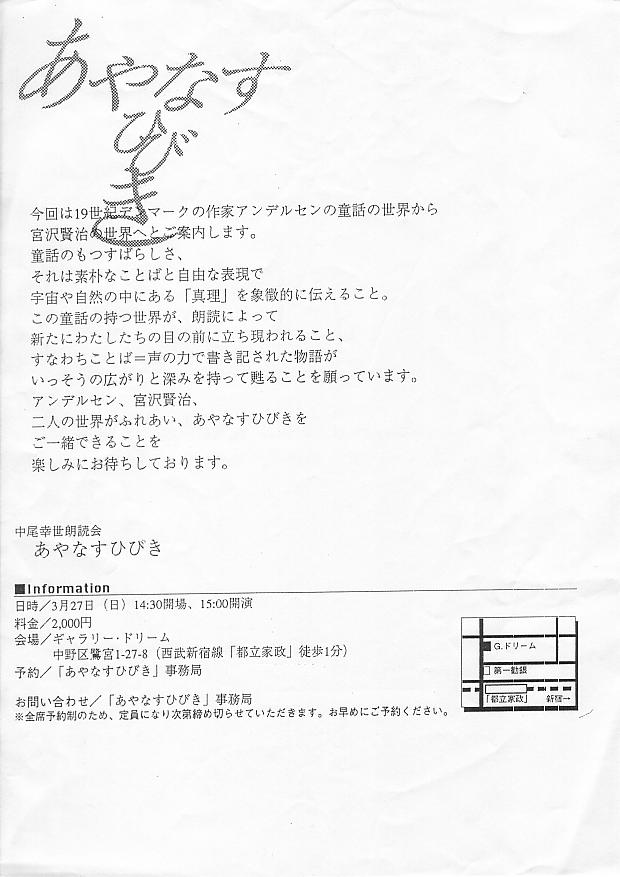 あやなす
ひびき
今回は19世紀デンマークの作家アンデルセンの童話の世界から
宮沢賢治の世界へとご案内します。
童話のもつすばらしさ、
それは素朴なことばと自由な表現で
宇宙や自然の中にある「真理」を象徴的に伝えること。
この童話の持つ世界が、朗読によって
新たにわたしたちの目の前に立ち現われること、
すなわちことば＝声の力で書き記された物語が
いっそうの広がりと深みを持って甦ることを願っています。
アンデルセン、宮沢賢治、
二人の世界がふれあい、あやなすひびきを
ご一緒できることを
楽しみにお待ちしております。
中尾幸世朗読会
あやなすひびき
■Information
日時／3月27日（日）14:30開場、15:00開演
料金／2,000円
会場／ギャラリー・ドリーム
中野区鷺宮1-27-8（西武新宿線「都立家政」徒歩1分）
予約／「あやなすひびき」事務局
お問い合わせ／「あやなすひびき」事務局
※全席予約制のため、定員になり次第締め切らせていただきます。お早めにご予約ください。
G.ドリーム
第一勧銀
「都立家政」 新宿→